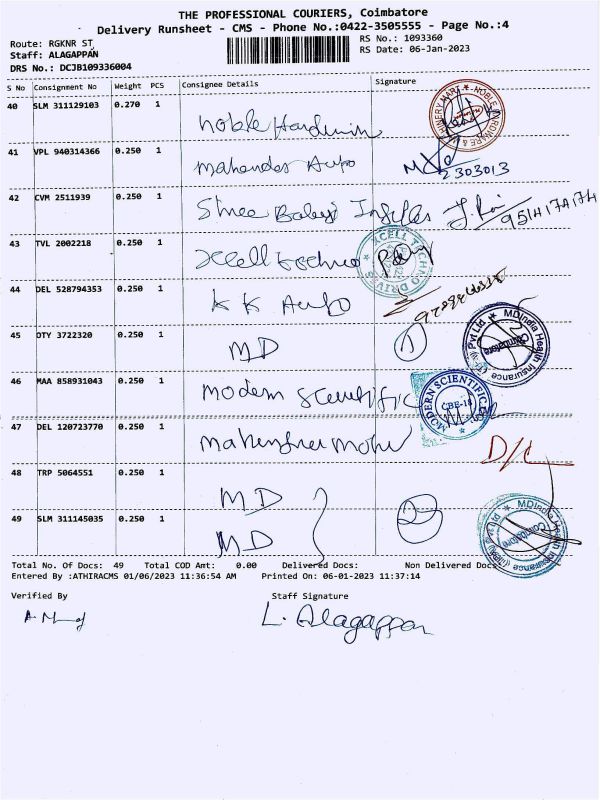 THE PROFESSIONAL COURIERS, Coimbatore
Delivery Runsheet - CMS - Phone No.:0422-3505555 - Page No.:4
Route: RGKNR ST
RS No.: 1093360
Staff: ALAGAPPAN
RS Date: 06-Jan-2023
DRS No.: DCJB109336004
S No Consignment No Weight PCS Consignee Details Signature
40 SLM 311129103 0.270 1 Noble Hardwin
41 VPL 940314366 0.250 1 Mahendra Auto 2303013
42 CVM 2511939 0.250 1 Shree Balaji
43 TVL 2002218 0.250 1 Xcell techno XCELL TECHNO DRIVES
44 DEL 528794353 0.250 1 KK Auto
45 OTY 3722320 0.250 1 MD 1 MDIndia Health Insurance Pvt Ltd Coimbatore
46 MAA 858931043 0.250 1 Modern Scientific MODERN SCIENTIFIC CBE-18
47 DEL 120723770 0.250 1 D/L
48 TRP 5064551 0.250 1 MD 2
49 SLM 311145035 0.250 1 MD MDIndia Health Coimbatore
Total No. Of Docs: 49 Total COD Amt: 0.00 Delivered Docs: Non Delivered Docs
Entered By :ATHIRACMS 01/06/2023 11:36:54 AM Printed On: 06-01-2023 11:37:14
Verified By Staff Signature
L. Alagappan